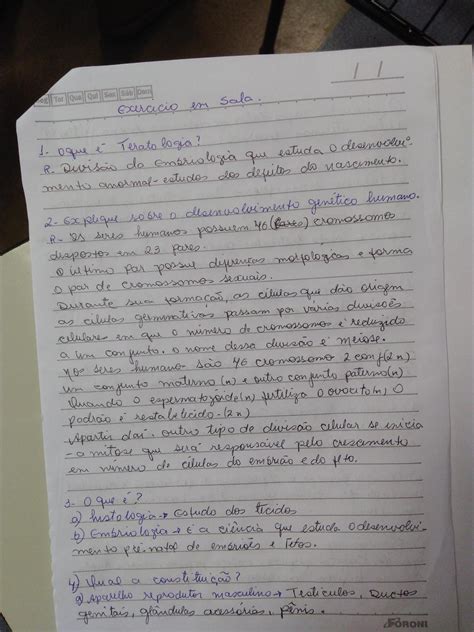 Ter Qua Qui Sex Sáb Dom
/ /
Exercício em Sala.
1. O que é Teratologia?
R. Divisão da Embriologia que estuda o desenvolvi-
mento anormal - estudos dos defeitos do nascimento.
2- Explique sobre o desenvolvimento genético humano.
R- Os seres humanos possuem 46 (Pares) cromossomos
dispostos em 23 pares.
O último par possue diferenças morfológicas e forma
o par de cromossomos sexuais.
Durante sua formação, as células que dão origem
as células germinativas passam por várias divisões
celulares em que o número de cromossomos é reduzido
a um conjunto, o nome dessa divisão é meiose.
Nos seres humano são 46 cromossomo 2 conj (2n)
um conjunto materno (n) e outro conjunto paterno (n)
Quando o espermatozóide (n) fertiliza o ovocito (n), O
padrão é restabelecido - (2n)
Apartir daí, outro tipo de divisão celular se inicia
- a mitose que será responsável pelo crescimento
em número de células do embrião e do feto.
3- O que é?
a) histologia → Estudo dos tecidos
b) Embriologia → É a ciência que estuda o desenvolvi-
mento pré-natal de embriões e fetos.
4) Qual a constituição?
a) Aparelho reprodutor masculino → Testículos, Ductos
genitais, glândulas acessórias, pênis.
FORONI